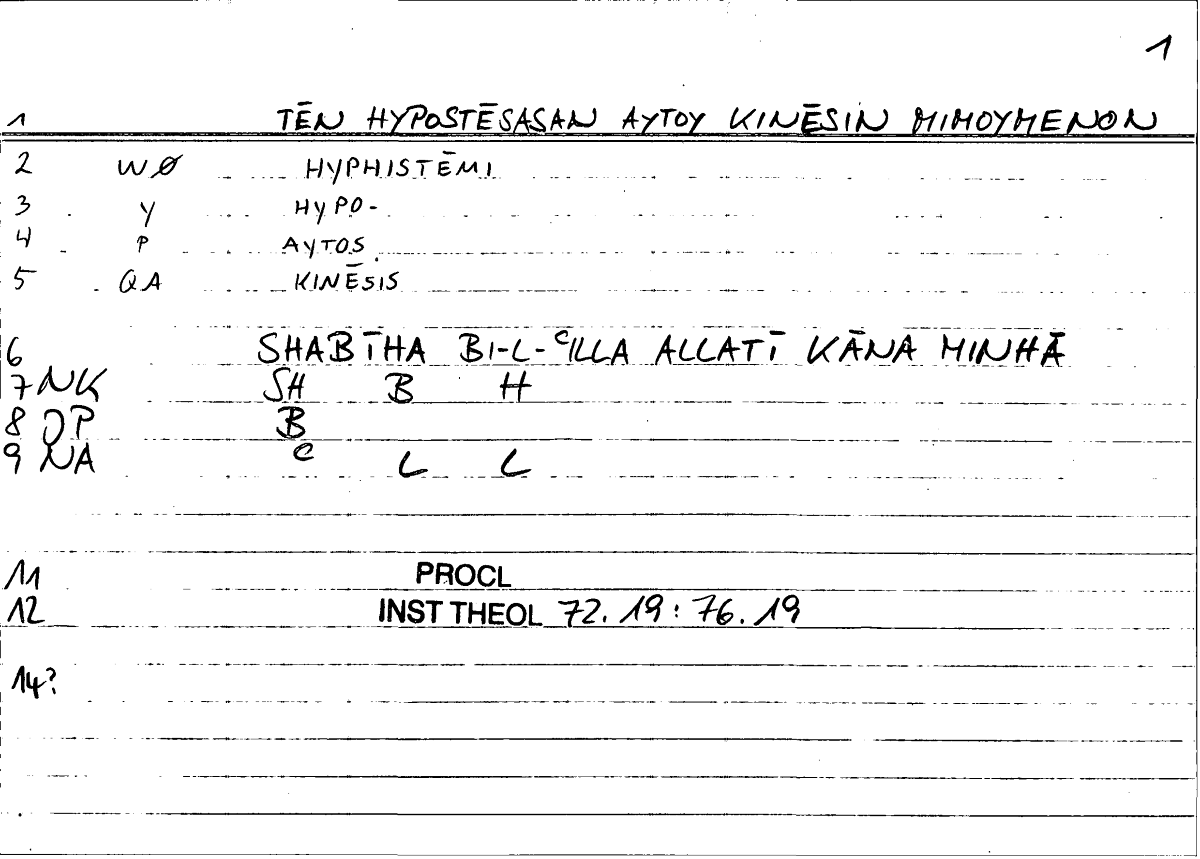 1
1 TĒN HYPOSTĒSASAN AYTOY KINĒSIN MIMOYMENON
2 WØ HYPHISTĒMI
3 Y HYPO-
4 P AYTOS
5 QA KINĒSIS
6 SHABĪHA BI-L-ʿILLA ALLATĪ KĀNA MINHĀ
7 NK SH B H
8 P B
9 NA ʿ L L
11 PROCL
12 INST THEOL 72.19:76.19
14?